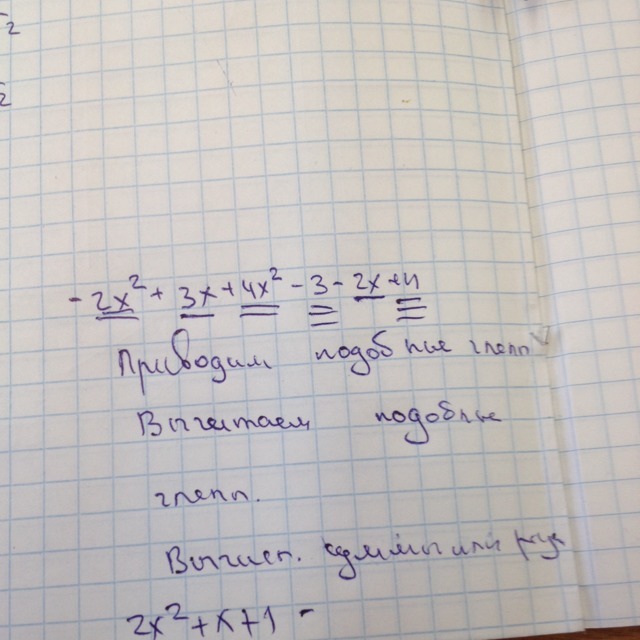 √2
√2
- 2x² + 3x + 4x² - 3 - 2x + 4
Приводим подобные члены
Вычитаем подобные
члены.
Вычисл. суммы или
2x² + x + 1 -